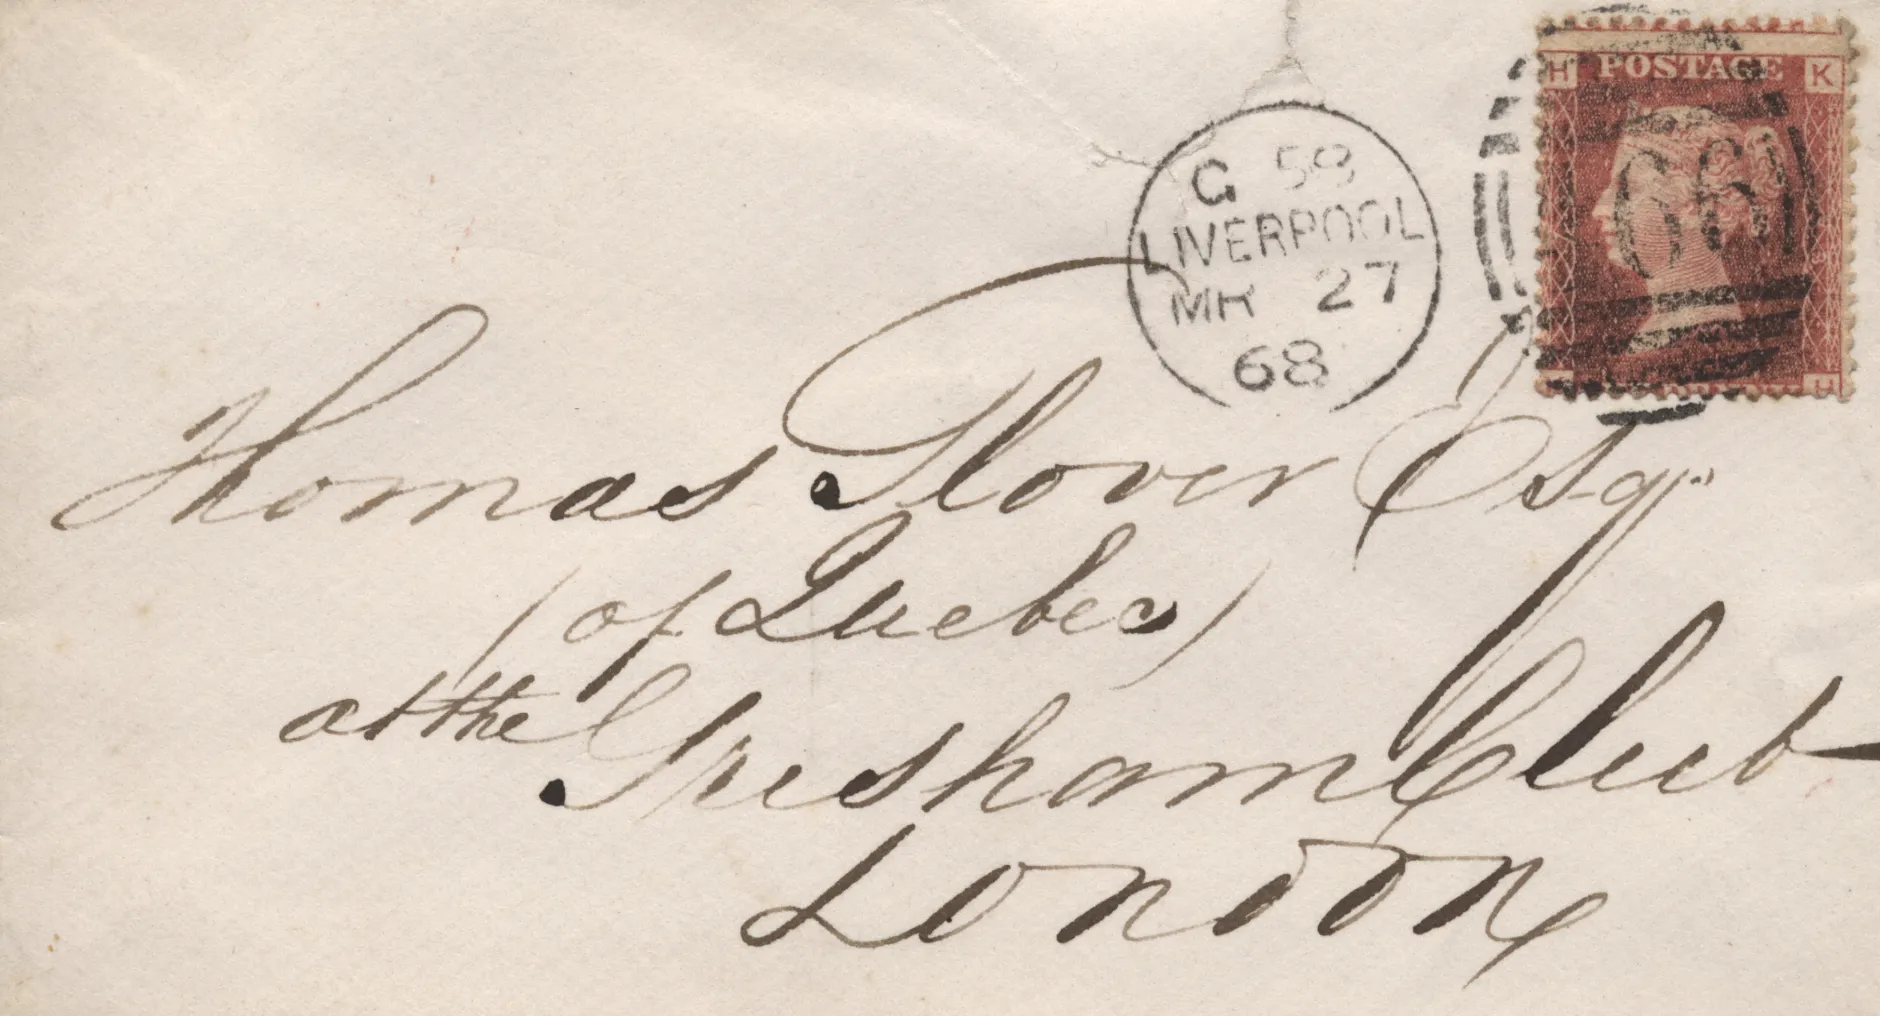 H POSTAGE K
G 58
LIVERPOOL
MR 27
68
466
H
Thomas Glover Esqr.
(of Quebec)
at the Gresham Club
London